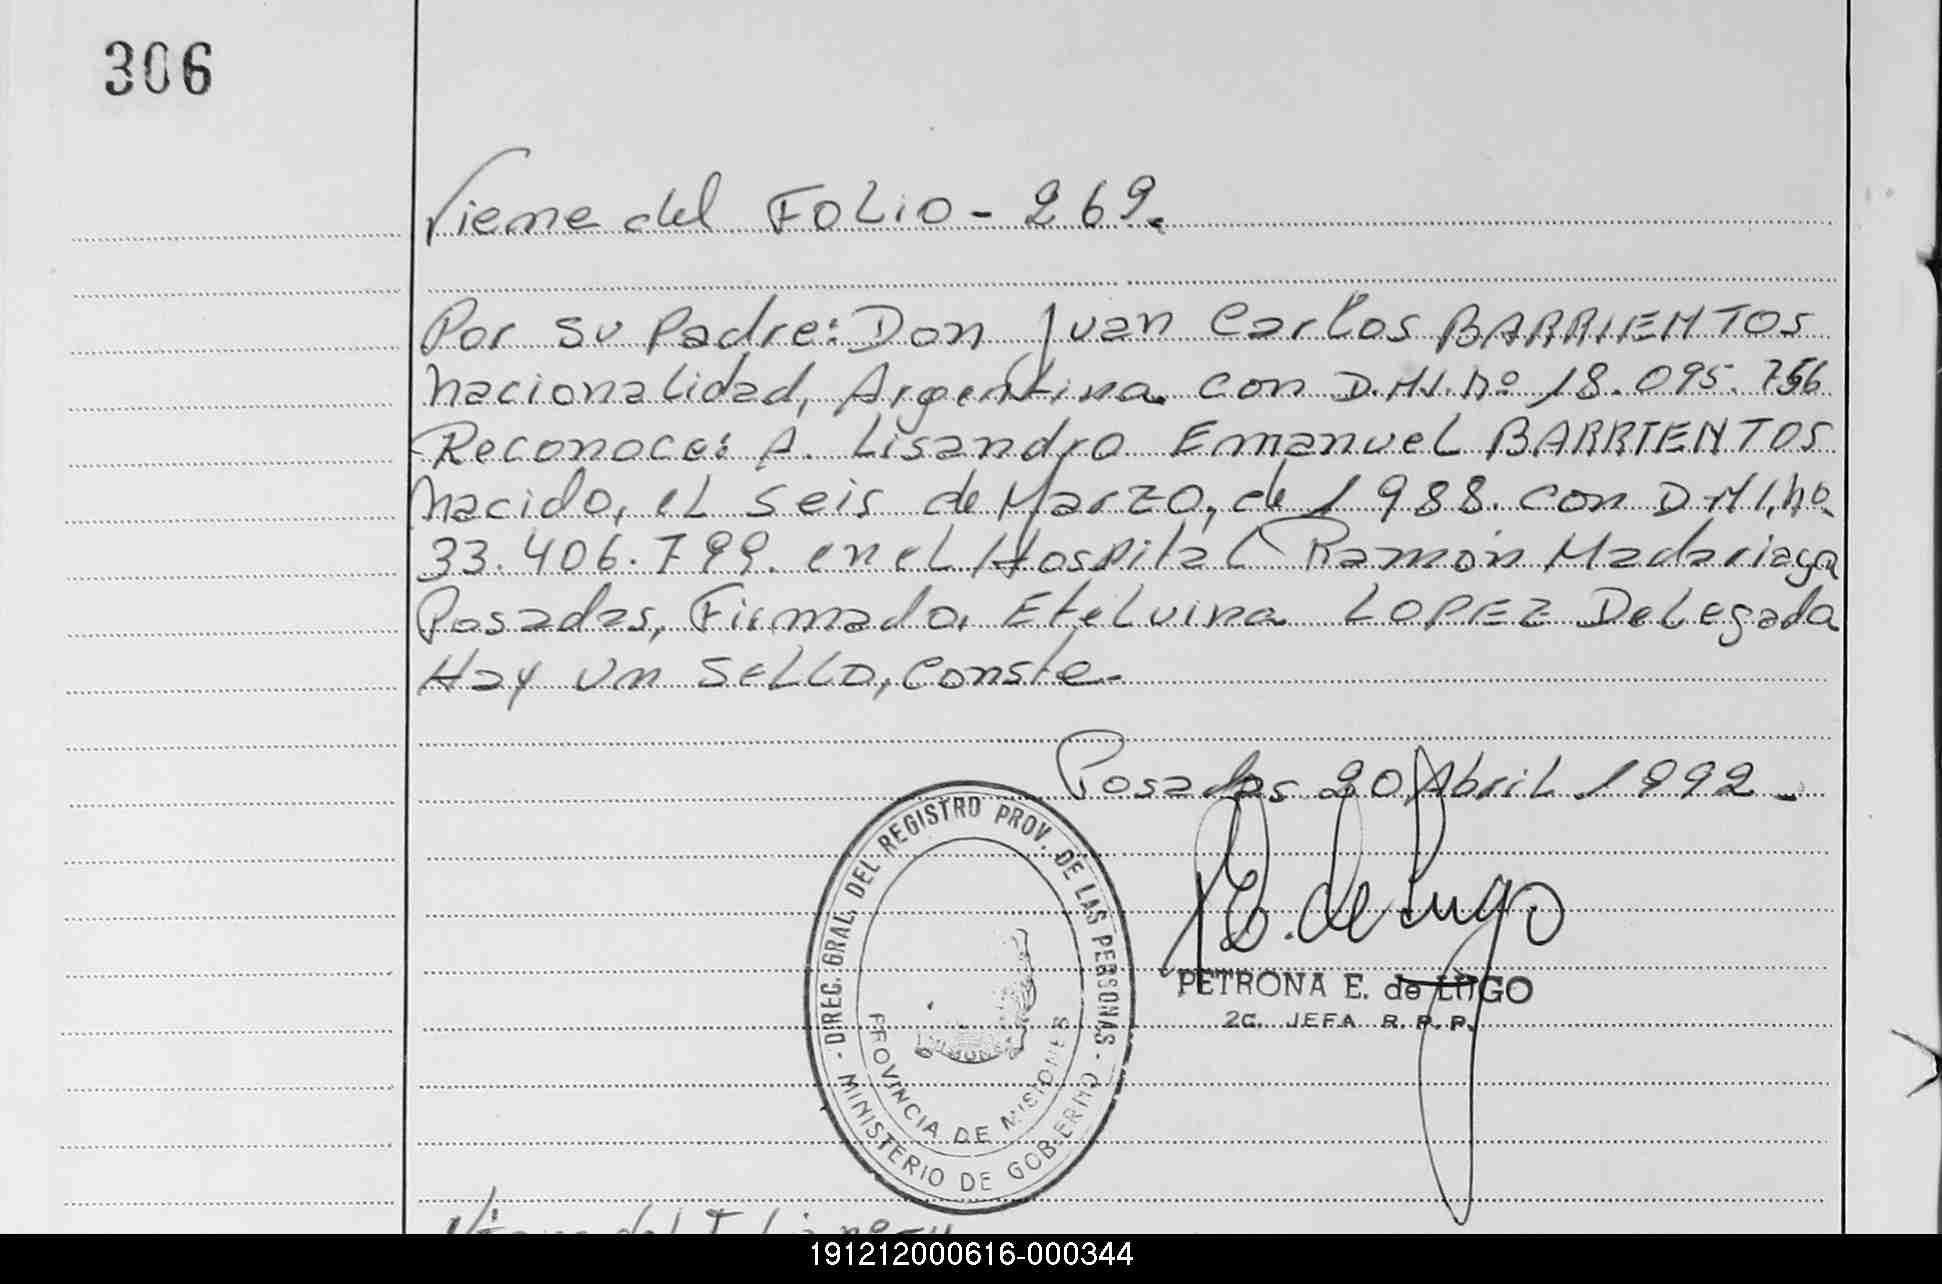 306
Viene del Folio - 269.
Por su Padre: Don Juan Carlos BARRIENTOS
nacionalidad, Argentina. con D.N.I. Nº 18.095.756
Reconoce: A. Lisandro Emanuel BARRIENTOS
nacido, el seis de Marzo, de 1988. con D.N.I, nº.
33.406.799. en el Hospital Ramón Madariaga
Posadas, Firmado. Etelvina LOPEZ Delegada
Hay un SELLO, Conste.-
Posadas 20 Abril 1992.-
P.E. de Lugo
PETRONA E. de LUGO
2C. JEFA R.P.P.
- DIREC. GRAL. DEL REGISTRO PROV. DE LAS PERSONAS -
MINISTERIO DE GOBIERNO
PROVINCIA DE MISIONES
Viene del Folio nº
191212000616-000344